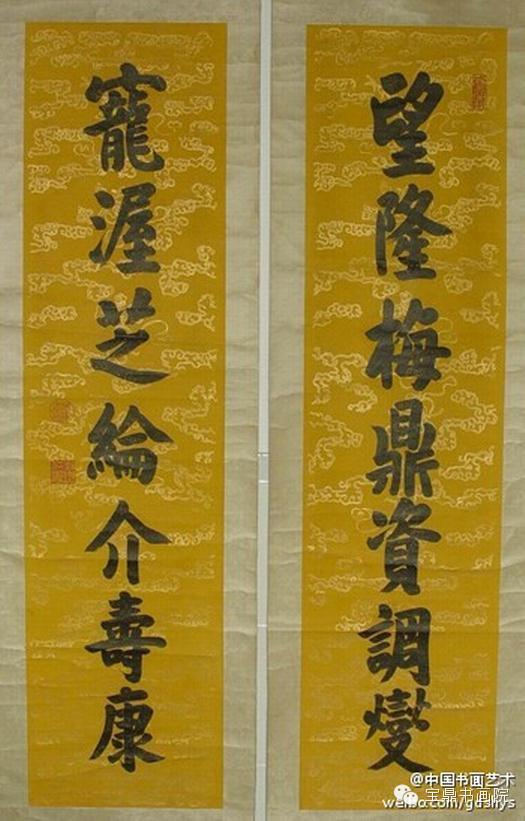 望隆梅鼎資調燮
寵渥芝綸介壽康
@中国书画艺术
宝鼎书画院
weibo.com/gdshys